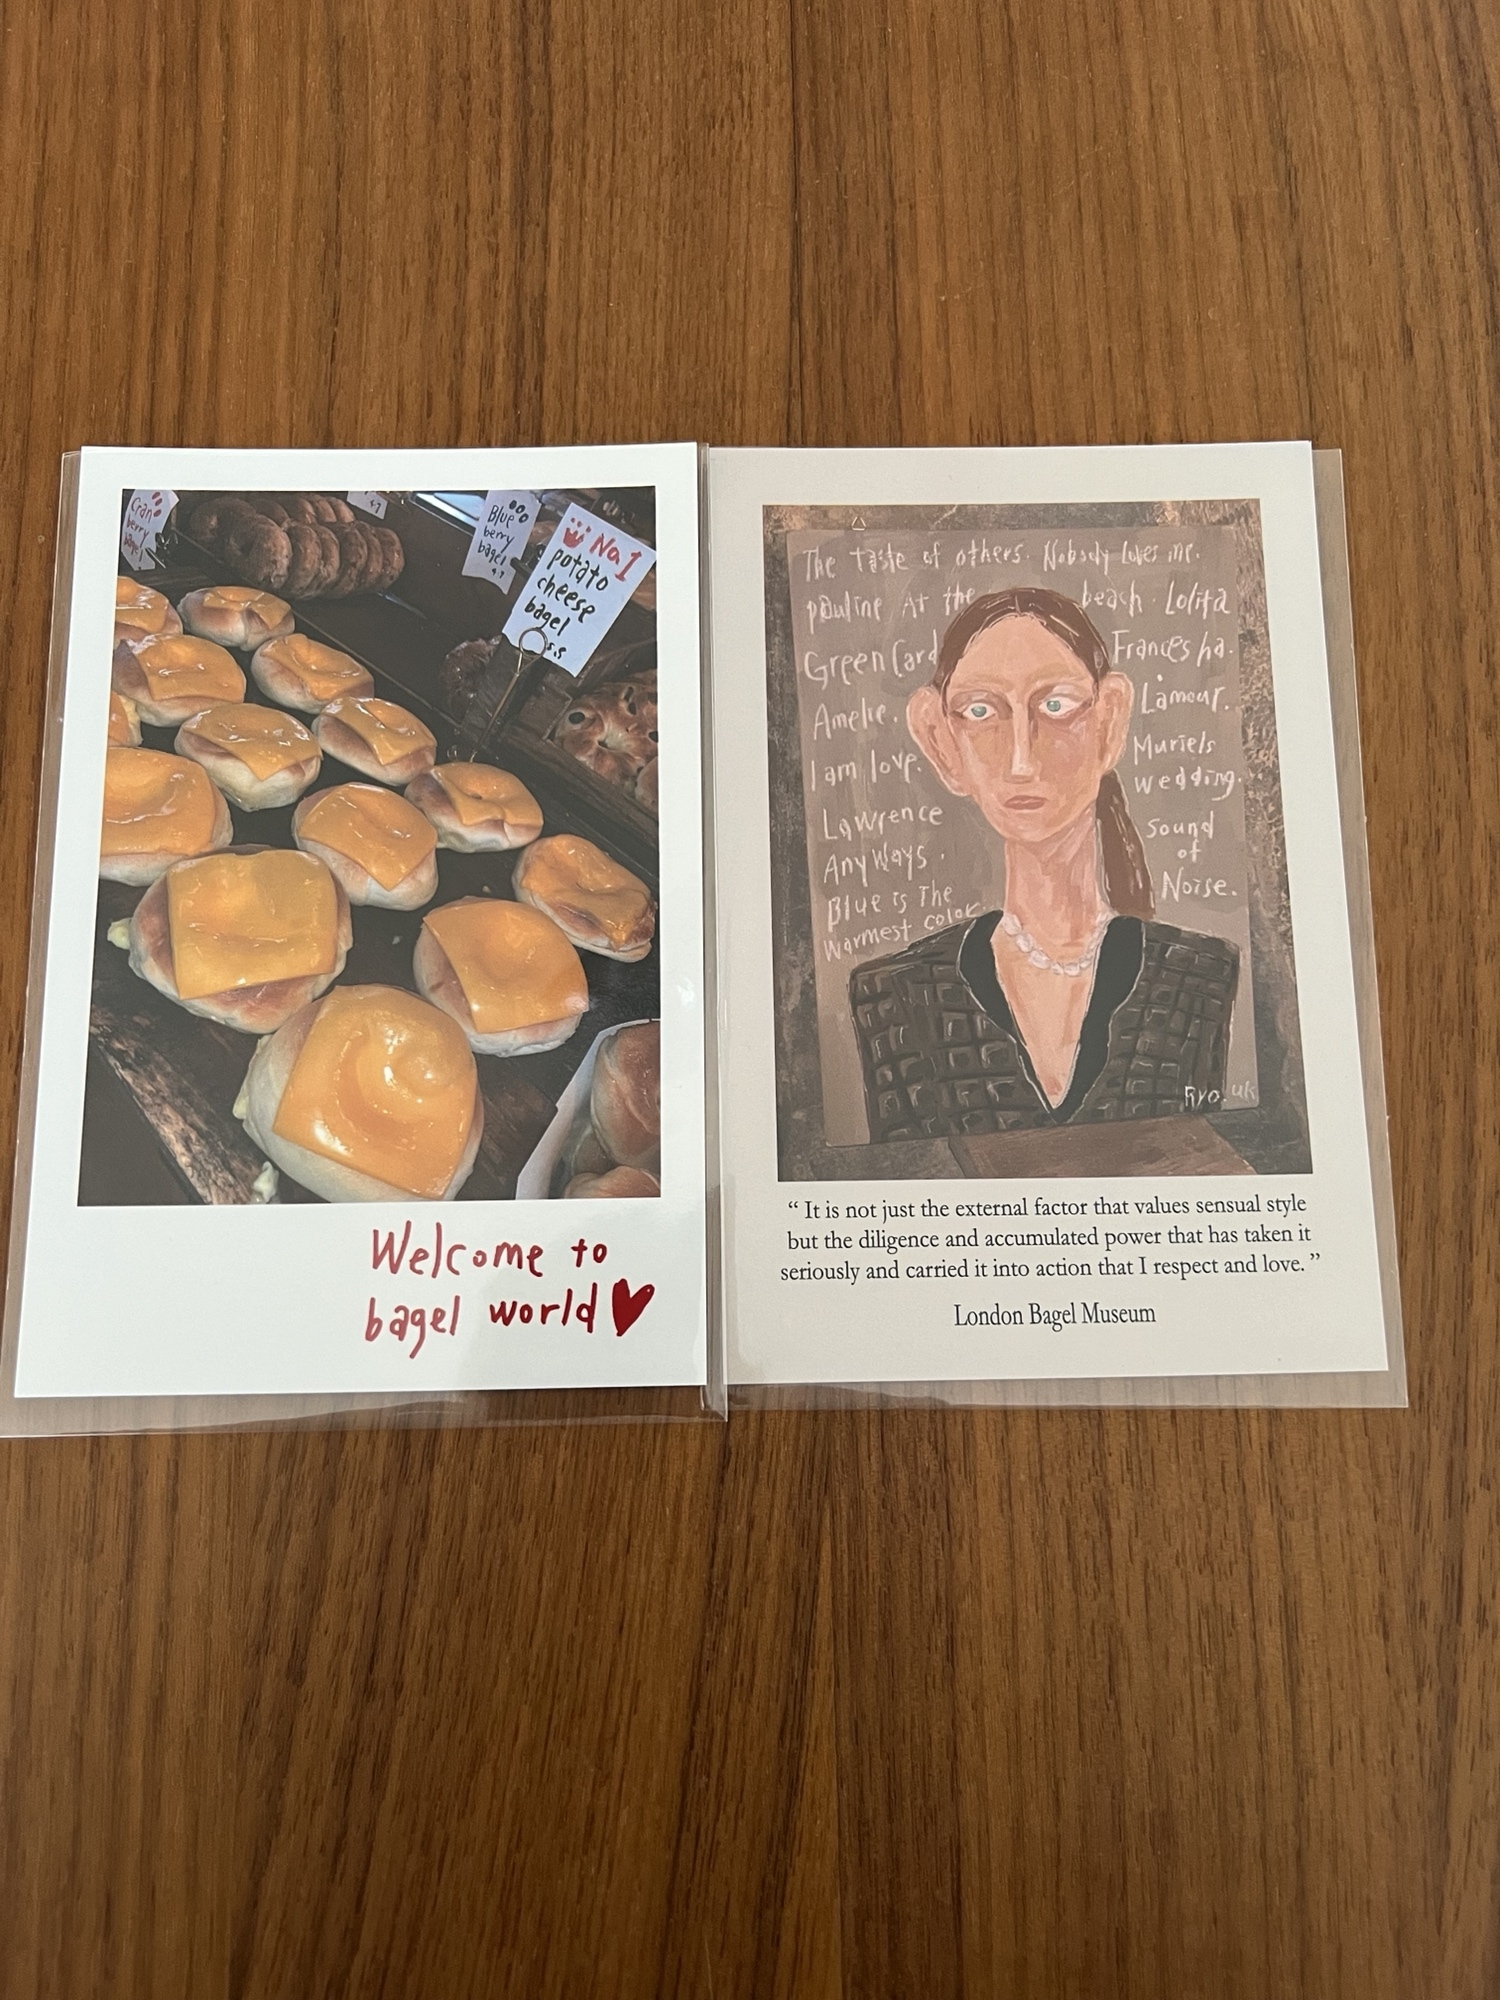 Cran
berry
bagel
4.7
Blue
berry
bagel
4.7
No.1
potato
cheese
bagel
5.5
Welcome to
bagel world
The taste of others. Nobody loves me.
pauline At the beach. Lolita
Green Card Frances ha.
Amelie. L'amour.
I am love. Muriels
wedding.
Lawrence
Any Ways.
Sound
of
Noise.
Blue is The
Warmest Color.
Ryo.uk
“ It is not just the external factor that values sensual style
but the diligence and accumulated power that has taken it
seriously and carried it into action that I respect and love. ”
London Bagel Museum